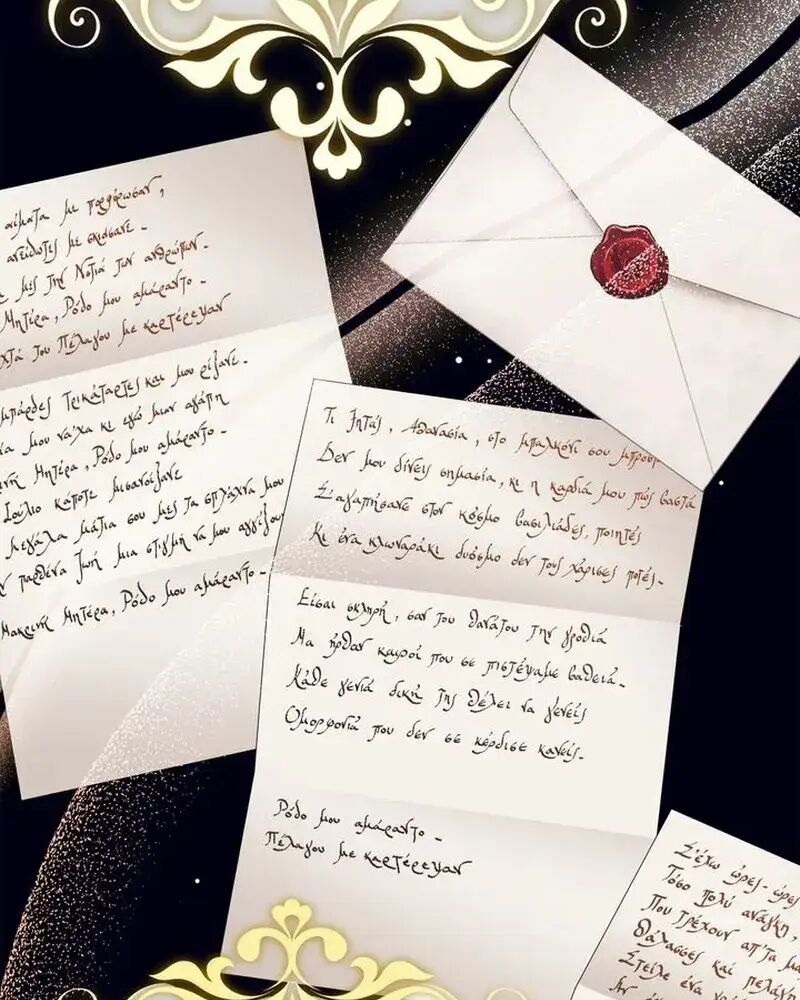 αίματα με πορφύρωσαν,
ανείδωτες με σκιάσανε.
μες την Νοτιά των ανθρώπων.
Μητέρα, Ρόδο μου αμάραντο.
του Πέλαγου με καρτέρεψαν
μπάρδες τρικάταρτες και μου ρίξανε.
μου να'χα κι εγώ μιαν αγάπη
Μητέρα, Ρόδο μου αμάραντο.
Ιούλιο κάποτε μισανοίξανε
μεγάλα μάτια σου μες τα σπλάχνα μου
παρθένα ζωή μια στιγμή να μου αγγίξουν
Μακρινή Μητέρα, Ρόδο μου αμάραντο.
Τι ζητάς, Αθανασία, στο μπαλκόνι σου μπροστ
Δεν μου δίνεις σημασία, κι η καρδιά μου πώς βαστά
Σ'αγαπήσανε στον κόσμο βασιλιάδες, ποιητές
Κι ένα κλωναράκι δυόσμο δεν τους χάρισες ποτές.
Είσαι σκληρή, σαν του θανάτου την γροθιά
Μα ήρθαν καιροί που σε πιστέψαμε βαθειά.
Κάθε γενιά δική της θέλει να γενείς
Ομορφονιά που δεν σε κέρδισε κανείς.
Ρόδο μου αμάραντο.
Πέλαγου με καρτέρεψαν
Σ'έχω ώρες-ώρες
Τόσο πολύ ανάγκη,
Που τρέχουν απ'τα
Θάλασσες και πελάγ
Στείλε ένα
Αν